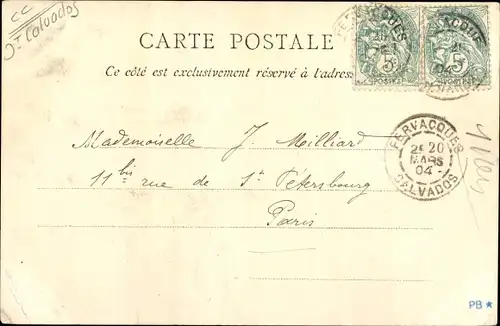 CC
Dt Calvados
CARTE POSTALE
Ce côté est exclusivement réservé à l'adresse
FERVACQUES
20
04
5
POSTES
5
POSTES
FERVACQUES
2E 20
MARS
04
CALVADOS
Mademoiselle J. Milliard
11bis rue de St Pétersbourg
Paris
PB